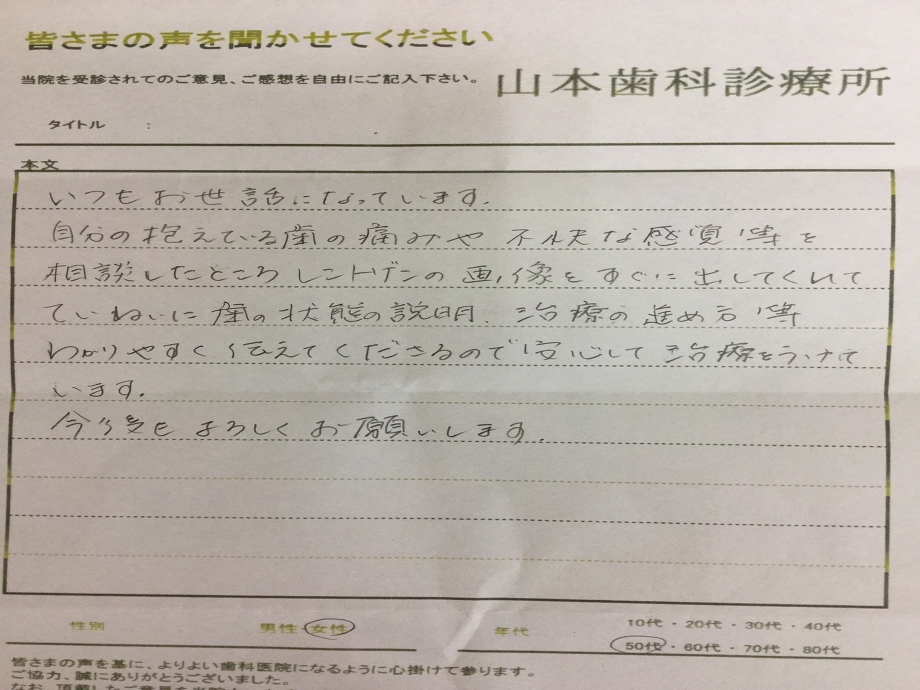 皆さまの声を聞かせてください
当院を受診されてのご意見、ご感想を自由にご記入下さい。
山本歯科診療所
タイトル :
本文
いつもお世話になっています.
自分の抱えている歯の痛みや 不快な感覚 等を
相談したところ レントゲンの 画像をすぐに出してくれて
ていねいに 歯の状態の説明. 治療の進め方 等
わかりやすく 伝えてくださるので 安心して 治療をうけて
います.
今後とも よろしく お願いします.
性別 男性・女性 年代 10代・20代・30代・40代
50代・60代・70代・80代
皆さまの声を基に、よりよい歯科医院になるように心掛けて参ります。
ご協力、誠にありがとうございました。
なお、頂戴したご意見を当院